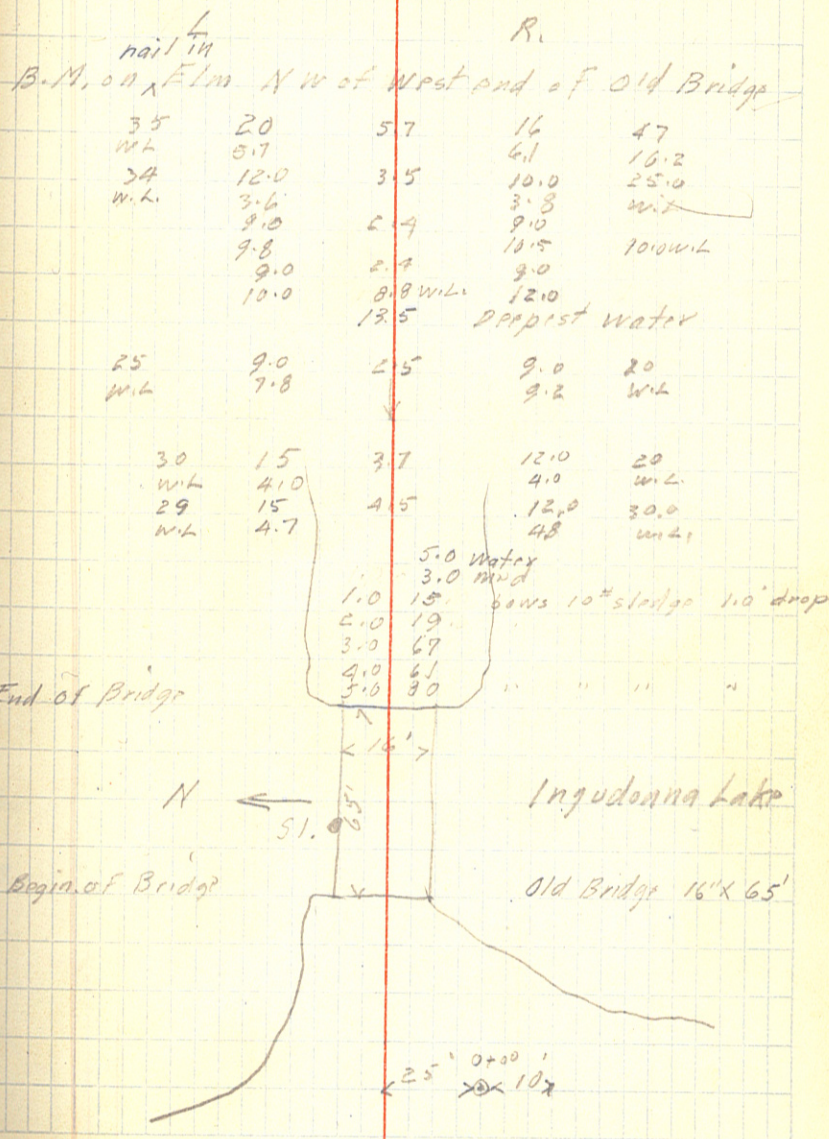 L R.
nail in
B.M. on ^ Elm N W of West end of Old Bridge
35 20 5.7 16 47
W.L 5.7 6.1 16.2
34 12.0 3.5 10.0 25.0
W.L. 3.6 3.8 W.L
9.0 2.4 9.0
9.8 10.5 10.0 W.L
9.0 2.4 9.0
10.0 8.8 W.L. 12.0
13.5 Deepest water
25 9.0 2.5 9.0 20
W.L 7.8 9.2 W.L
30 15 3.7 12.0 20
W.L 4.0 4.0 W.L.
29 15 4.5 12.0 30.0
W.L 4.7 48 W.L.
5.0 water
3.0 mud
1.0 15 bows 10# sledge 1.0' drop
2.0 19
3.0 67
4.0 61
End of Bridge 5.0 80 " " " "
16'
N 65' Ingudonna Lake
S1.
Begin. of Bridge Old Bridge 16" X 65'
25' 0+00 10'